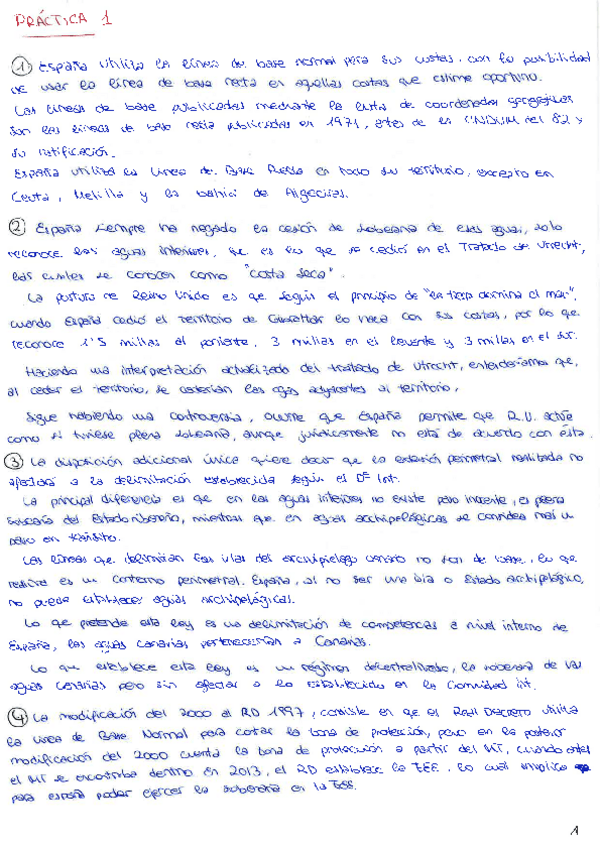 PRÁCTICA 1
① España utiliza la línea de base normal para sus costas, con la posibilidad
de usar la línea de base recta en aquellas costas que estime oportuno.
Las líneas de base publicadas mediante la lista de coordenadas geográficas
son las líneas de base recta publicadas en 1971, antes de la CNUDM del 82 y
su ratificación.
España utiliza la Línea de Base Recta en todo su territorio, excepto en
Ceuta, Melilla y la bahía de Algeciras.
② España siempre ha negado la cesión de soberanía de esas aguas, solo
reconoce las aguas interiores, que es lo que se cedió en el Tratado de Utrecht,
las cuales se conocen como "costa seca".
La postura de Reino Unido es que según el principio de "la tierra domina el mar",
cuando España cedió el territorio de Gibraltar lo hacía con sus costas, por lo que
reconoce 1'5 millas al poniente, 3 millas en el levante y 3 millas en el sur.
Haciendo una interpretación actualizada del tratado de Utrecht, entenderíamos que,
al ceder el territorio, se cederían las aguas adyacentes al territorio.
Sigue habiendo una controversia, ocurre que España permite que R.U. actúe
como si tuviese plena soberanía, aunque jurídicamente no está de acuerdo con ésta.
③ La disposición adicional única quiere decir que la extensión perimetral realizada no
afectará a la delimitación establecida según el Dº Int.
La principal diferencia es que en las aguas interiores no existe paso inocente, es plena
soberanía del Estado ribereño, mientras que en aguas archipelágicas se considera
paso en tránsito.
Las líneas que delimitan las islas del archipiélago canario no son de base, lo que
realiza es un contorno perimetral. España, al no ser una isla o Estado archipelágico,
no puede establecer aguas archipelágicas.
Lo que pretende esta ley es una delimitación de competencias a nivel interno de
España, las aguas canarias pertenecerían a Canarias.
Lo que establece esta ley es un régimen descentralizado, la soberanía de las
aguas canarias pero sin afectar a lo establecido en la Comunidad int.
④ La modificación del 2000 al RD 1997, consiste en que el Real Decreto utiliza
la línea de Base Normal para contar la zona de protección, pero en la posterior
modificación del 2000 cuenta la zona de protección a partir del MT, cuando antes
el MT se encontraba dentro. En 2013, el RD establece la ZEE, lo cual implica
para españa poder ejercer la soberanía en la ZEE.
1